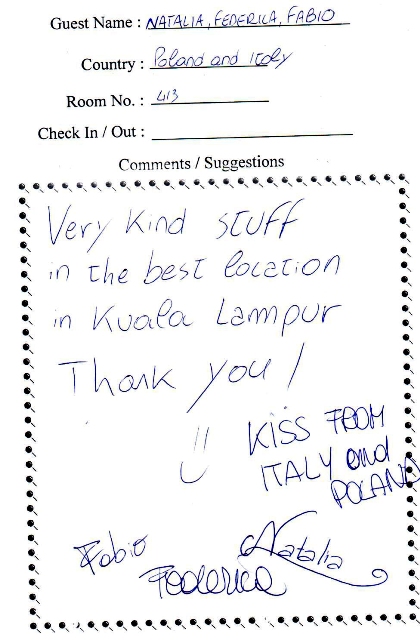 Guest Name : NATALIA, FEDERICA, FABIO
Country : Poland and Italy
Room No. : 413
Check In / Out :
Comments / Suggestions
Very Kind stuff
in the best location
in Kuala Lampur
Thank you!
KISS FROM
ITALY and
POLAND
Fabio
Federica
Natalia